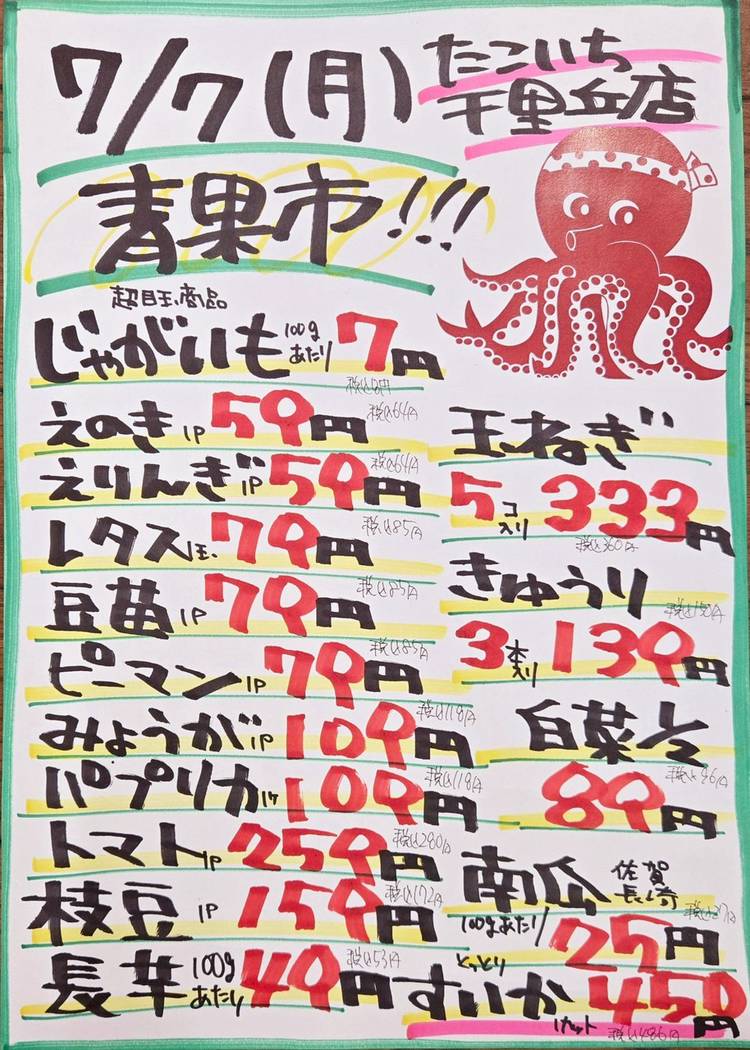 7/7(月)
たこいち
千里丘店
青果市!!!
超目玉商品
じゃがいも 100gあたり 7円
税込8円
えのき 1P 59円 税込64円
えりんぎ 1P 59円 税込64円
レタス 1玉 79円 税込85円
豆苗 1P 79円 税込85円
ピーマン 1P 79円 税込85円
みょうが 1P 109円 税込118円
パプリカ 1ケ 109円 税込118円
トマト 1P 259円 税込280円
枝豆 1P 159円 税込172円
長芋 100gあたり 49円 税込53円
玉ねぎ
5コ入り 333円
税込360円
きゅうり
税込150円
3本入り 139円
白菜 1/2
税込96円
89円
南瓜 佐賀 長崎
100gあたり 25円 税込27円
とっとり
すいか 450円
1カット 税込486円